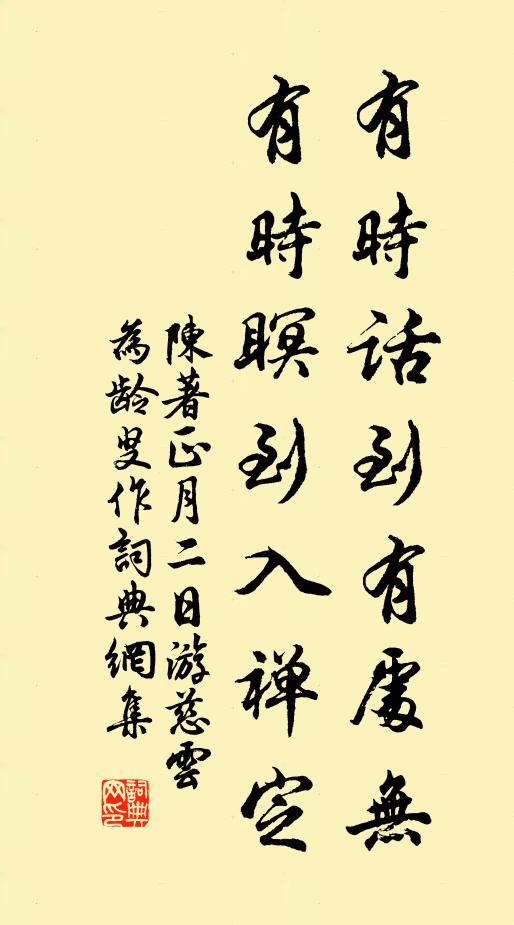 有時話到有處無
有時瞑到入禅定
陳著正月二日游慈雲
為齡叟作詞典網集
詞典網印